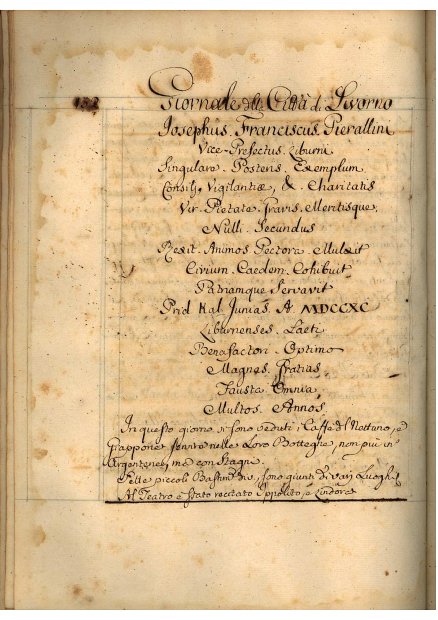 132
Giornale della Città di Livorno
Iosephus. Franciscus. Pierallini
Vice-Prefectus Liburni
Singulare. Posteris. Exemplum
Consilj, Vigilantiæ, &. Charitatis
Vir. Pietate. Gravis. Meritisque,
Nulli. Secundus
Rexit. Animos. Pectora. Mulxit
Civium. Caedem. Cohibuit
Patriamque Servavit
Prid Kal. Junias. A. MDCCXC
Liburnenses. Laeti
Benefactori. Optimo
Magnes. Gratias,
Fausta. Omnia
Multos. Annos
In questo giorno si sono veduti i Caffè del Nettuno, e
Giappone servire nelle Loro Botteghe, non più in
Argenterie, ma con Stagni.
Sette piccoli Bastim. sono giunti di varj Luoghi
Al Teatro è stato recitato Ippolito, e Lindora